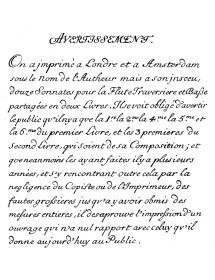 AVERTISSEMENT.
On a imprimé a Londre et a Amsterdam
sous le nom de l'Autheur mais a son insceu,
douze Sonnates pour la Flute Traversiere et Basse
partagées en deux Livres. Il se voit obligé d'avertir
le public qu'il n'y a que la 1.re la 2.me la 4.me la 5.me et
la 6.me du premier Livre, et les 3 premieres du
Second Livre, qui soient de sa Composition; et
que neanmoins les ayant faites il y a plusieurs
années, et s'y rencontrant outre cela par la
negligence du Copiste ou de l'Imprimeur, des
fautes grossieres jus qu'a y avoir obmis des
mesures entieres, il desaprouve l'impression d'un
ouvrage qui n'a nul rapport avec celuy qu'il
donne aujourd'huy au Public.